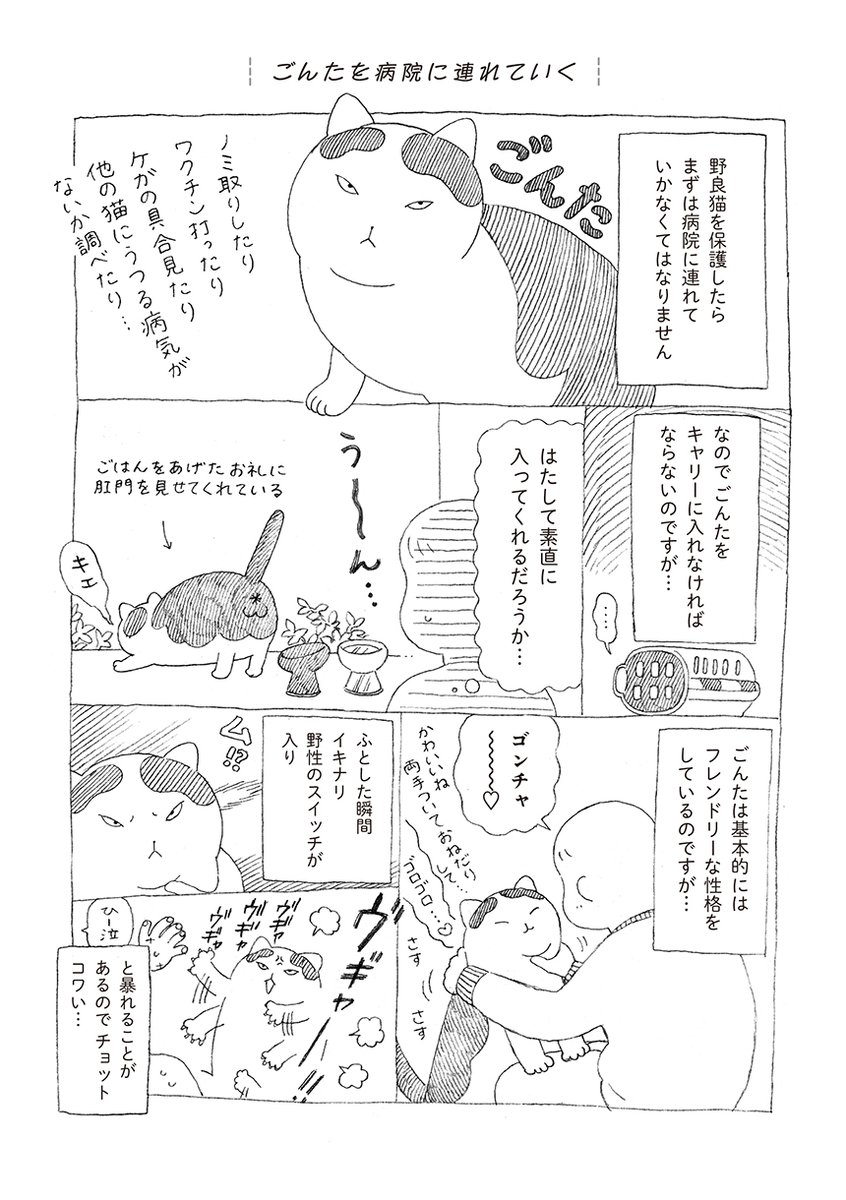 ごんたを病院に連れていく
野良猫を保護したら
まずは病院に連れて
いかなくてはなりません
ごんた
ノミ取りしたり
ワクチン打ったり
ケガの具合見たり
他の猫にうつる病気が
ないか調べたり…
なのでごんたを
キャリーに入れなければ
ならないのですが…
‥‥
はたして素直に
入ってくれるだろうか…
う〜〜ん…
ごはんをあげた お礼に
肛門を見せてくれている
キェ
ごんたは基本的には
フレンドリーな性格を
しているのですが…
ゴンチャ
〜〜〜♡
かわいいね
両手ついておねだり
して…
ゴロゴロ…♡
さす
さす
ふとした瞬間
イキナリ
野性のスイッチが
入り
ム!?
ヴギャーー!!
ヴギャ
ヴギャ
ヴギャ
ひー泣
と暴れることが
あるのでチョット
コワい…